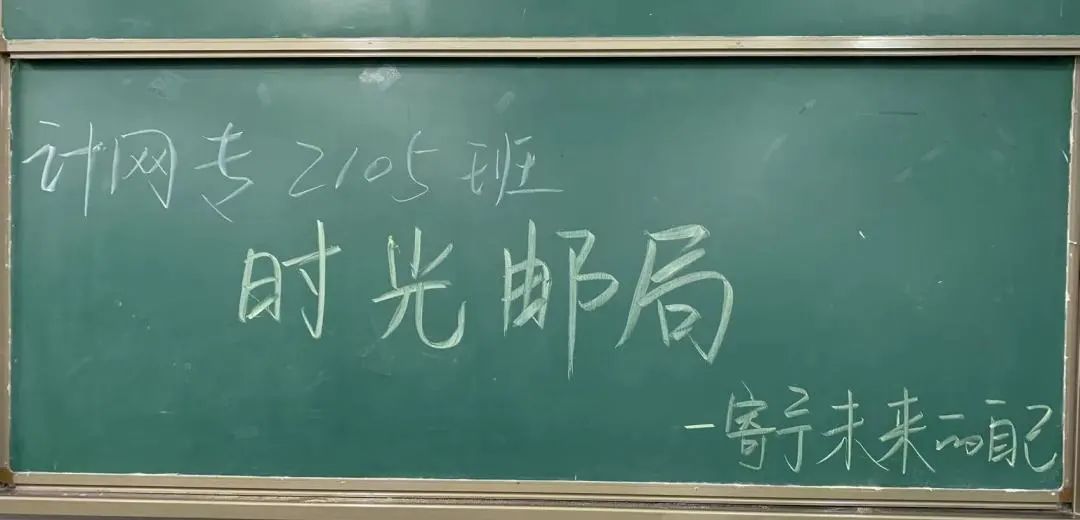 计网专2105班
时光邮局
—寄予未来的自己